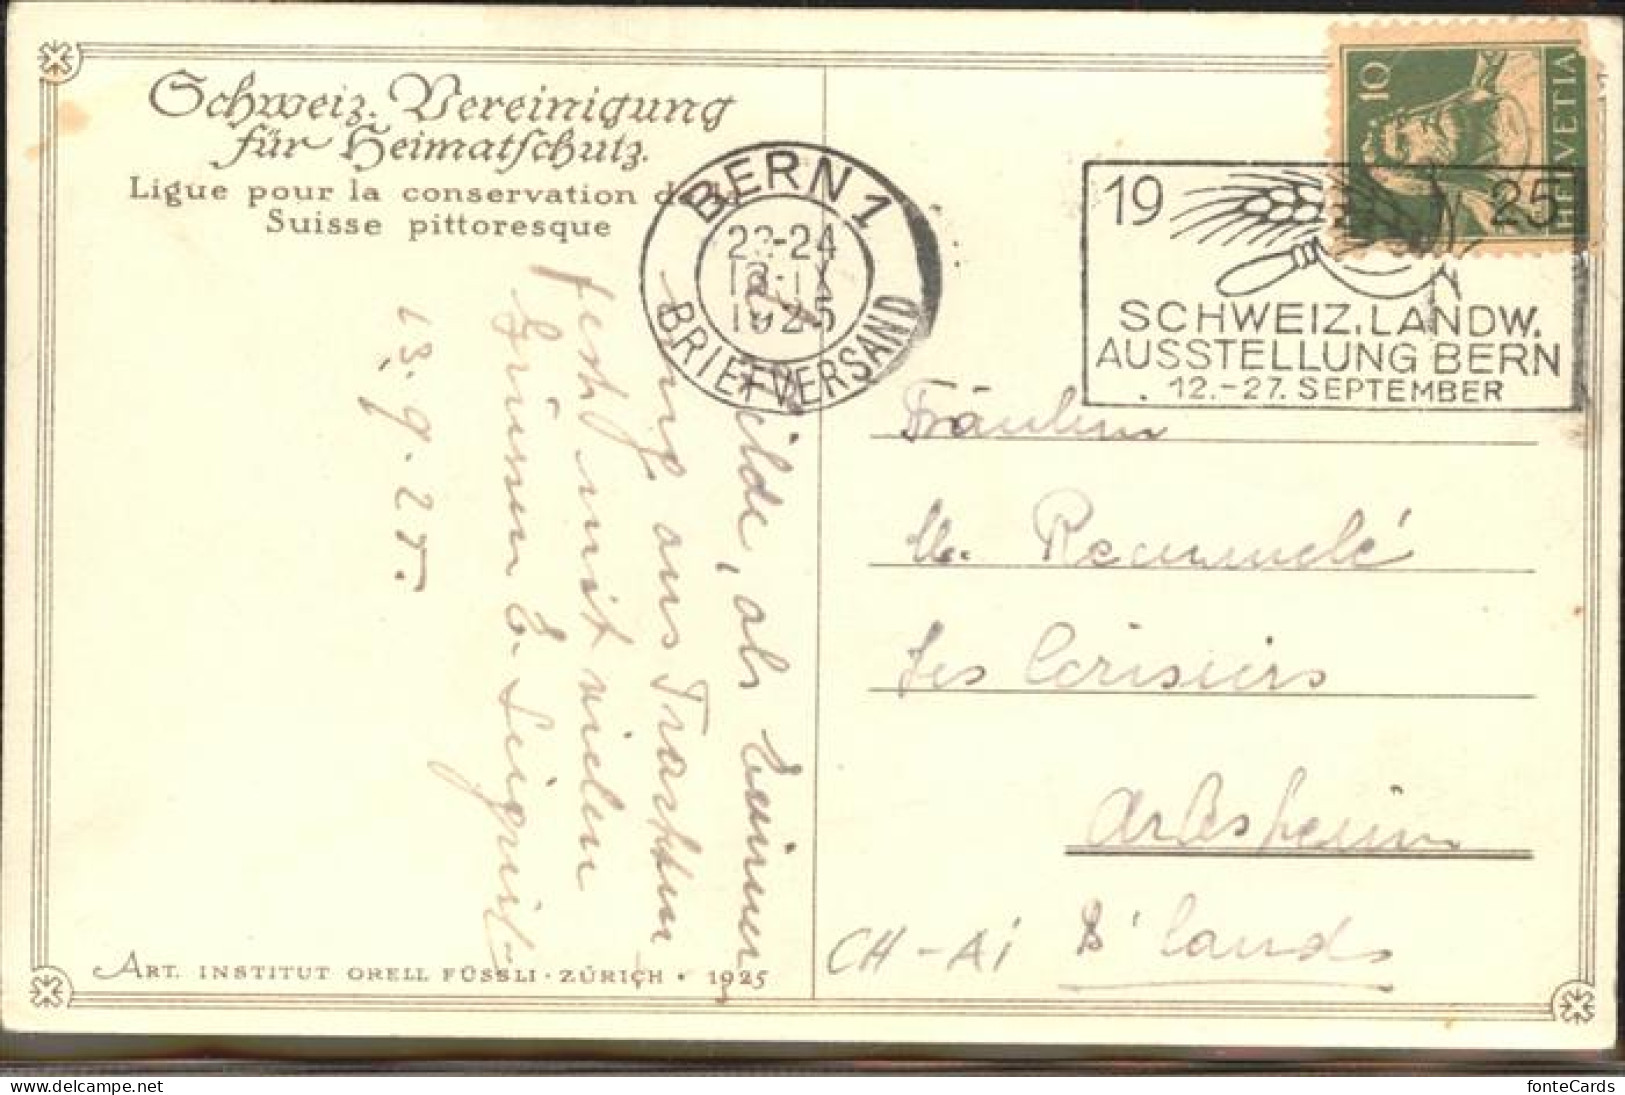 Schweiz. Vereinigung
für Heimatschutz.
Ligue pour la conservation de la
Suisse pittoresque
BERN 1
22-24
13.IX
1925
BRIEFVERSAND
10
HELVETIA
19 25
SCHWEIZ. LANDW.
AUSSTELLUNG BERN
12.-27. SEPTEMBER
Milde, als Erinner
ung ans Trachten
fest mit vielen
Grüssen E.
13.9.25.
Fräulein
M.
Les Cerisiers
Arlesheim
B'land
CH-Ai
ART. INSTITUT ORELL FÜSSLI · ZÜRICH · 1925
www.delcampe.net
fonteCards